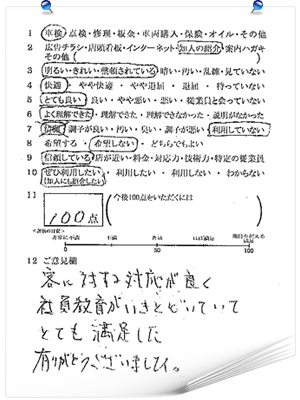 1 車検・点検・修理・板金・車両購入・保険・オイル・その他
2 広告チラシ・店頭看板・インターネット・知人の紹介・案内ハガキ
その他(
3 明るい・きれい・整頓されている・暗い・汚い・乱雑・見ていない
4 快適・やや快適・やや退屈・退屈・待っていない
5 とても良い・良い・やや悪い・悪い・従業員と会っていない
6 よく理解できた・理解できた・理解できなかった・説明がなかった
7 清潔・調子が良い・汚い・臭い・調子が悪い・利用していない
8 希望する・希望しない・どちらでもよい
9 信頼している・店が近い・料金・対応力・技術力・特定の従業員
10 ぜひ利用したい・利用したい・利用しない・わからない
(知人にも紹介したい)
11 100点
(今後100点をいただくには
非常に不満 不満 普通 ほぼ満足 期待を超える満足
0 50 100
12 ご意見欄
客に対する対応が良く
社員教育がいきとどいていて
とても満足した
有りがとうございました。